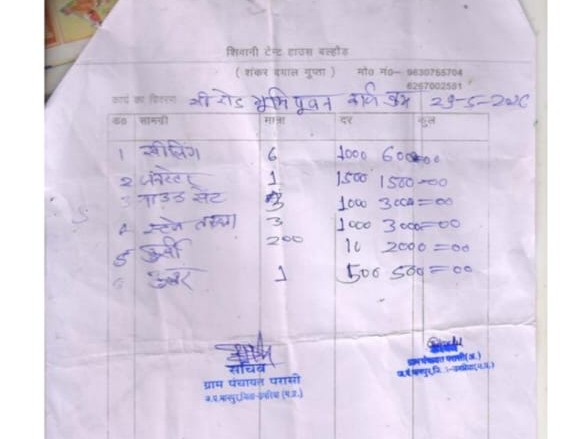 शिवानी टेन्ट हाउस बल्होड़
( शंकर दयाल गुप्ता ) मो० नं०– 9630755704
6267002591
कार्य का विवरण सी रोड भूमि पूजन कार्य क्रम 29-5-
क्र० सामग्री मात्रा दर कुल
1 सीलिंग 6 1000 6000=00
2 जनरेटर 1 1500 1500=00
3 साउंड सेट 3 1000 3000=00
4 स्टेज तख्त 3 1000 3000=00
5 कुर्सी 200 10 2000=00
6 कूलर 1 500 500=00
सचिव
ग्राम पंचायत परासी
ज.पं.मानपुर,जिला-उमरिया (म.प्र.)
ग्राम पंचायत परासी(अ.)
ज.पं.मानपुर,जि.:-उमरिया(म.प्र.)